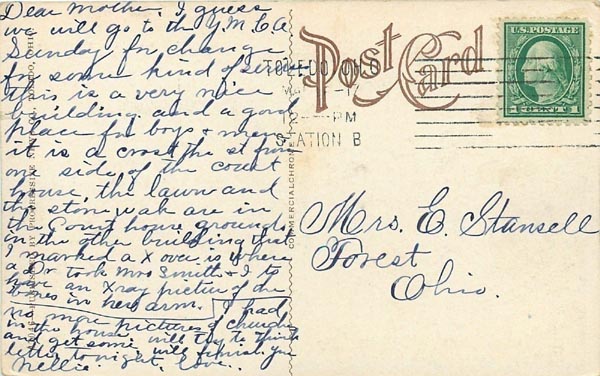 Dear Mother, I guess
we will go to the Y.M.C.A
Sunday for change
for some kind of
This is a very nice
building and a good
place for boys + men
it is a cross the st from
one side of the court
house, the lawn and
the stone walk are in
the Court house grounds
in the other building that
I marked a X over is where
a Dr took Mrs Smith + I to
have an Xray picture of the
bones in her arm. I had
no more pictures of church
in the house will try to
and get some will finish
letter to-night, love.
Nellie.
Post Card
TOLEDO, OHIO
12 PM
STATION B
U.S. POSTAGE
1 CENT 1
COMMERCIALCHROME
TOLEDO, OHIO
Mrs. E. Stansell
Forest
Ohio.